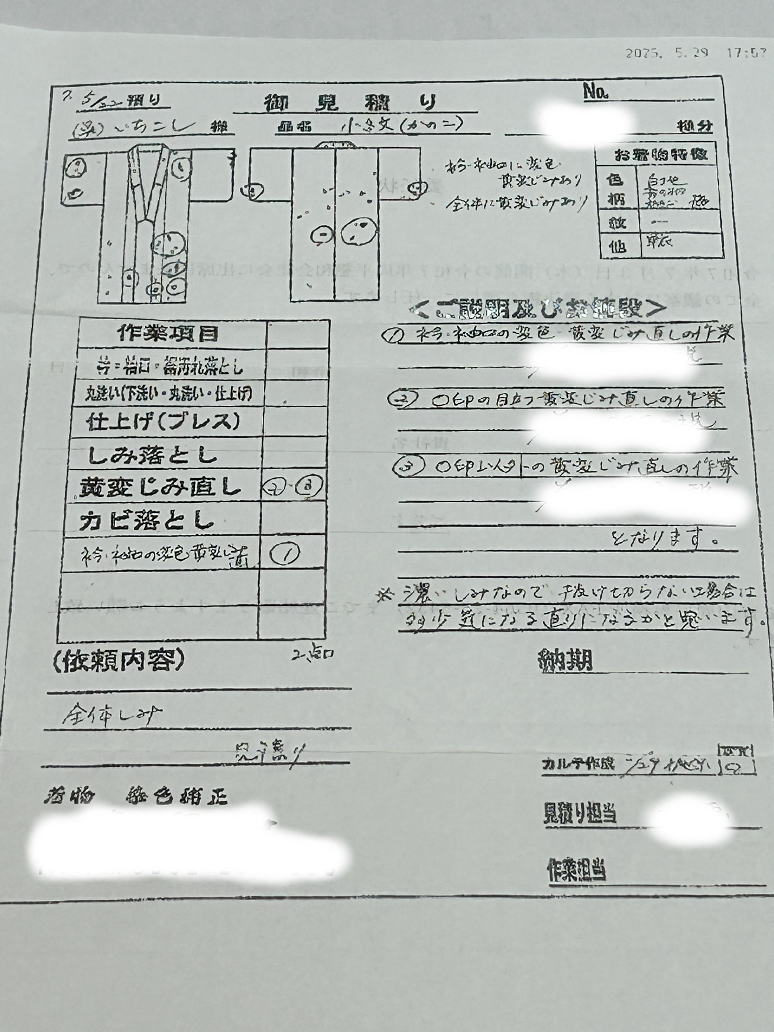 2025. 5.29 17:52
7. 5/22 預り
御見積り
No
(呉)いちこし 様
品名 小紋(かのこ)
様分
衿・袖口に変色
黄変じみあり
全体に黄変じみあり
お着物特徴
色 白地
柄
紋 一
他 単衣
<ご説明及びお値段>
① 衿・袖口の変色・黄変じみ直しの作業
② ○印の目立つ黄変じみ直しの作業
③ ○印以外の黄変じみ直しの作業
となります。
※ 濃いしみなので 抜けきらない場合は
多少 気になる直りになるかと思います。
作業項目
衿・袖口・裾汚れ落とし
丸洗い(下洗い・丸洗い・仕上げ)
仕上げ(プレス)
しみ落とし
黄変じみ直し ②・③
カビ落とし
衿・袖口の変色 黄変じみ直 ①
2点口
(依頼内容)
全体しみ
見積り
納期
着物 染色補正
カルテ作成
見積り担当
作業担当